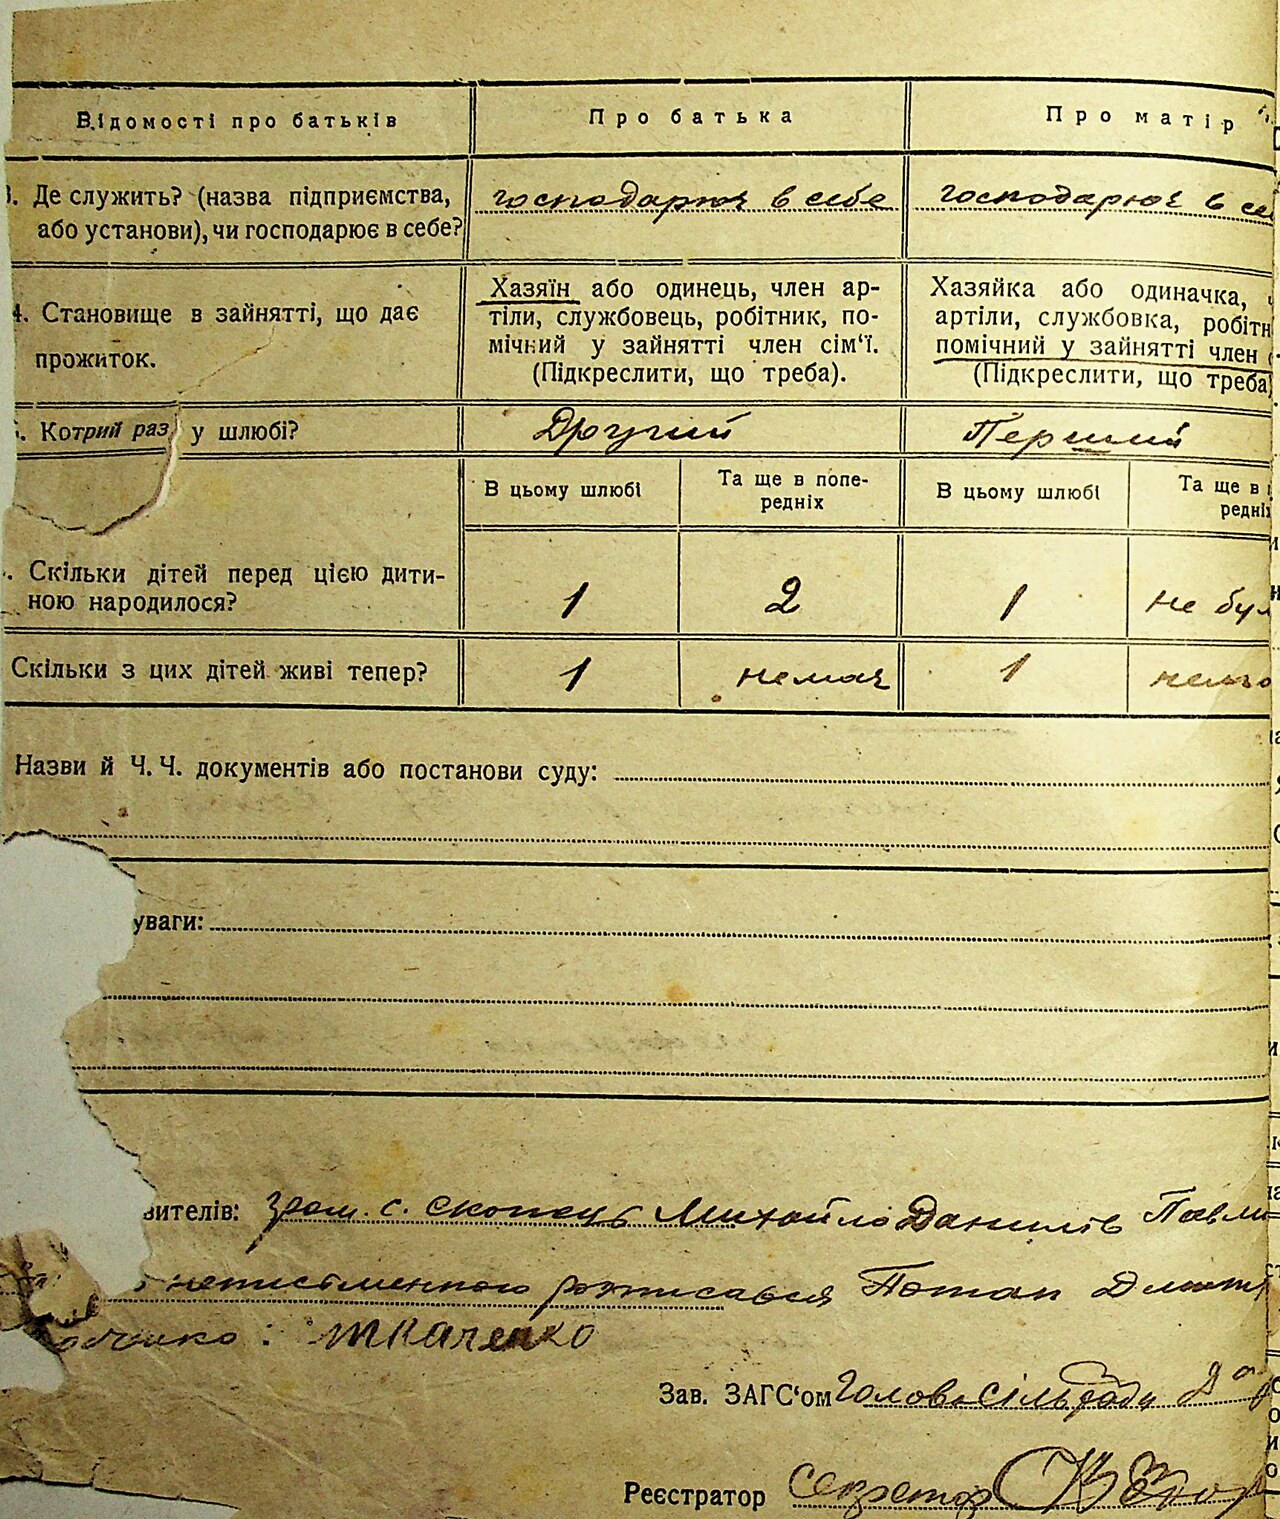 Відомості про батьків Про батька Про матір
Де служить? (назва підприємства, господарює в себе господарює в
або установи), чи господарює в себе?
4. Становище в зайнятті, що дає
прожиток.
Хазяїн або одинець, член ар-
тіли, службовець, робітник, по-
мічний у зайнятті член сім‘ї.
(Підкреслити, що треба).
Хазяйка або одиначка,
артіли, службовка, робітн
помічний у зайнятті член
(Підкреслити, що треба)
Котрий раз у шлюбі? Другий Перший
В цьому шлюбі Та ще в попе-
редніх
В цьому шлюбі Та ще в
редніх
Скільки дітей перед цією дити-
ною народилося? 1 2 1 не бул
Скільки з цих дітей живі тепер? 1 немає 1
Назви й Ч. Ч. документів або постанови суду:
уваги:
вителів: гром. с. Скопець Михайло Данилів Павли
неписьменного розписався Потап
Ткаченко
Зав. ЗАГС‘ом Голова сільради
Реєстратор секретар